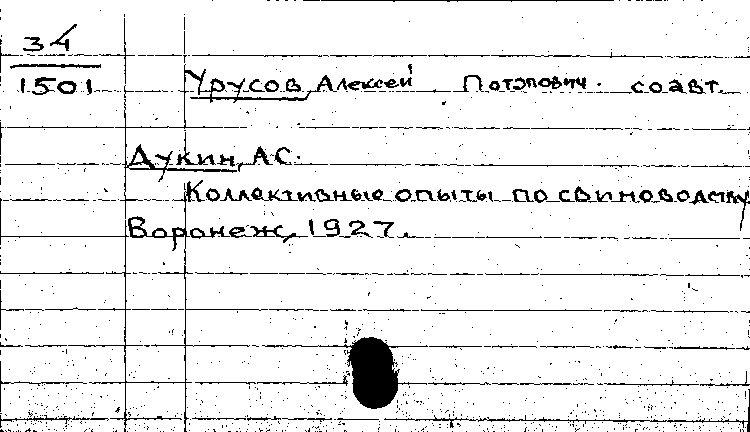 34
1501
Урусов, Алексей Потапович. соавт.
Дукин, А.С.
Коллективные опыты по свиноводству
Воронеж, 1927.